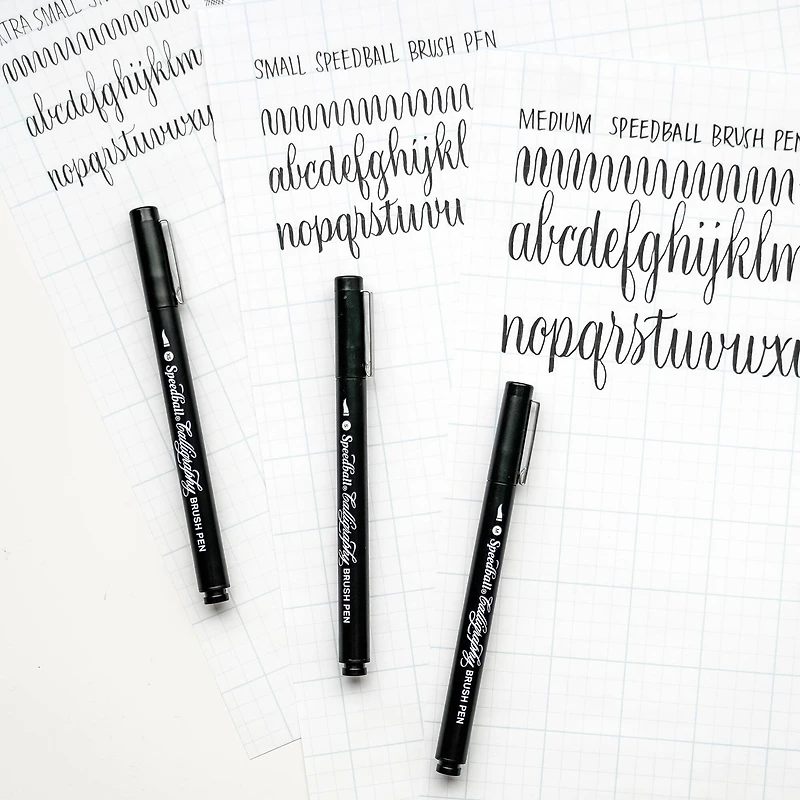 XTRA SMALL
abcdefghijklm
nopqrstuvwxy
SMALL SPEEDBALL BRUSH PEN
abcdefghijkl
nopqrstuvu
MEDIUM SPEEDBALL BRUSH PEN
abcdefghijklm
nopqrstuvwxy
XS Speedball® Calligraphy BRUSH PEN
S Speedball® Calligraphy BRUSH PEN
M Speedball® Calligraphy BRUSH PEN